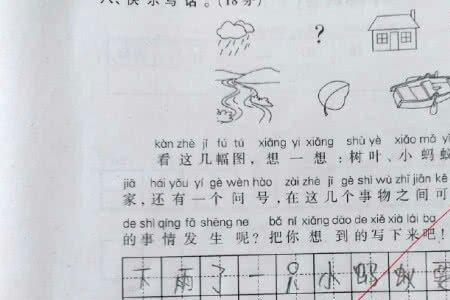 、快乐写话。(18分)
?
kàn zhè jǐ fú tú xiǎng yi xiǎng shù yè xiǎo mǎ
看这几幅图,想一想:树叶、小蚂蚁
jiā hái yǒu yí gè wèn hào zài zhè jǐ gè shì wù zhī jiān kě
家,还有一个问号,在这几个事物之间可
de shì qíng fā shēng ne bǎ nǐ xiǎng dào de xiě xià lái ba
的事情发生呢?把你想到的写下来吧!
下雨了一只小蚂蚁